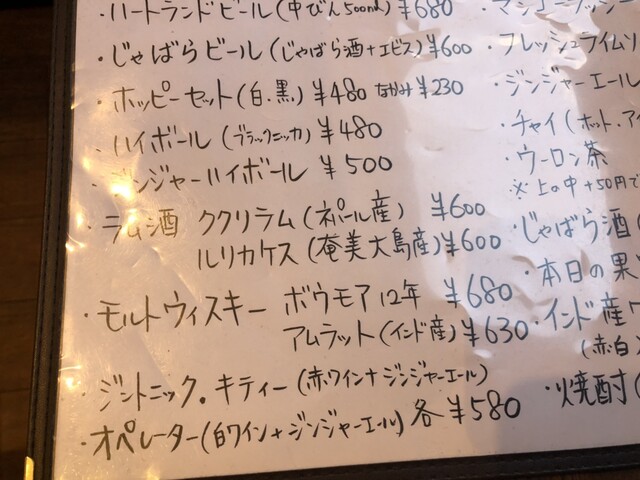 ・ハートランドビール(中びん500ml)¥680
・じゃばらビール(じゃばら酒+エビス)¥600
・ホッピーセット(白.黒)¥480 なかみ¥230
・ハイボール(ブラックニッカ)¥480
・ジンジャーハイボール ¥500
・ラム酒 ククリラム(ネパール産) ¥600
ルリカケス(奄美大島産)¥600
・モルトウィスキー ボウモア12年 ¥680
アムラット(インド産)¥630
・ジントニック。キティー(赤ワイン+ジンジャーエール)
・オペレーター(白ワイン+ジンジャーエール)各¥580
・フレッシュライムソ
・ジンジャーエール
・チャイ(ホット.アイ
・ウーロン茶
※上の中+50円で
・じゃばら酒(
・本日の果
・インド産ワ
(赤.白)
・焼酎(